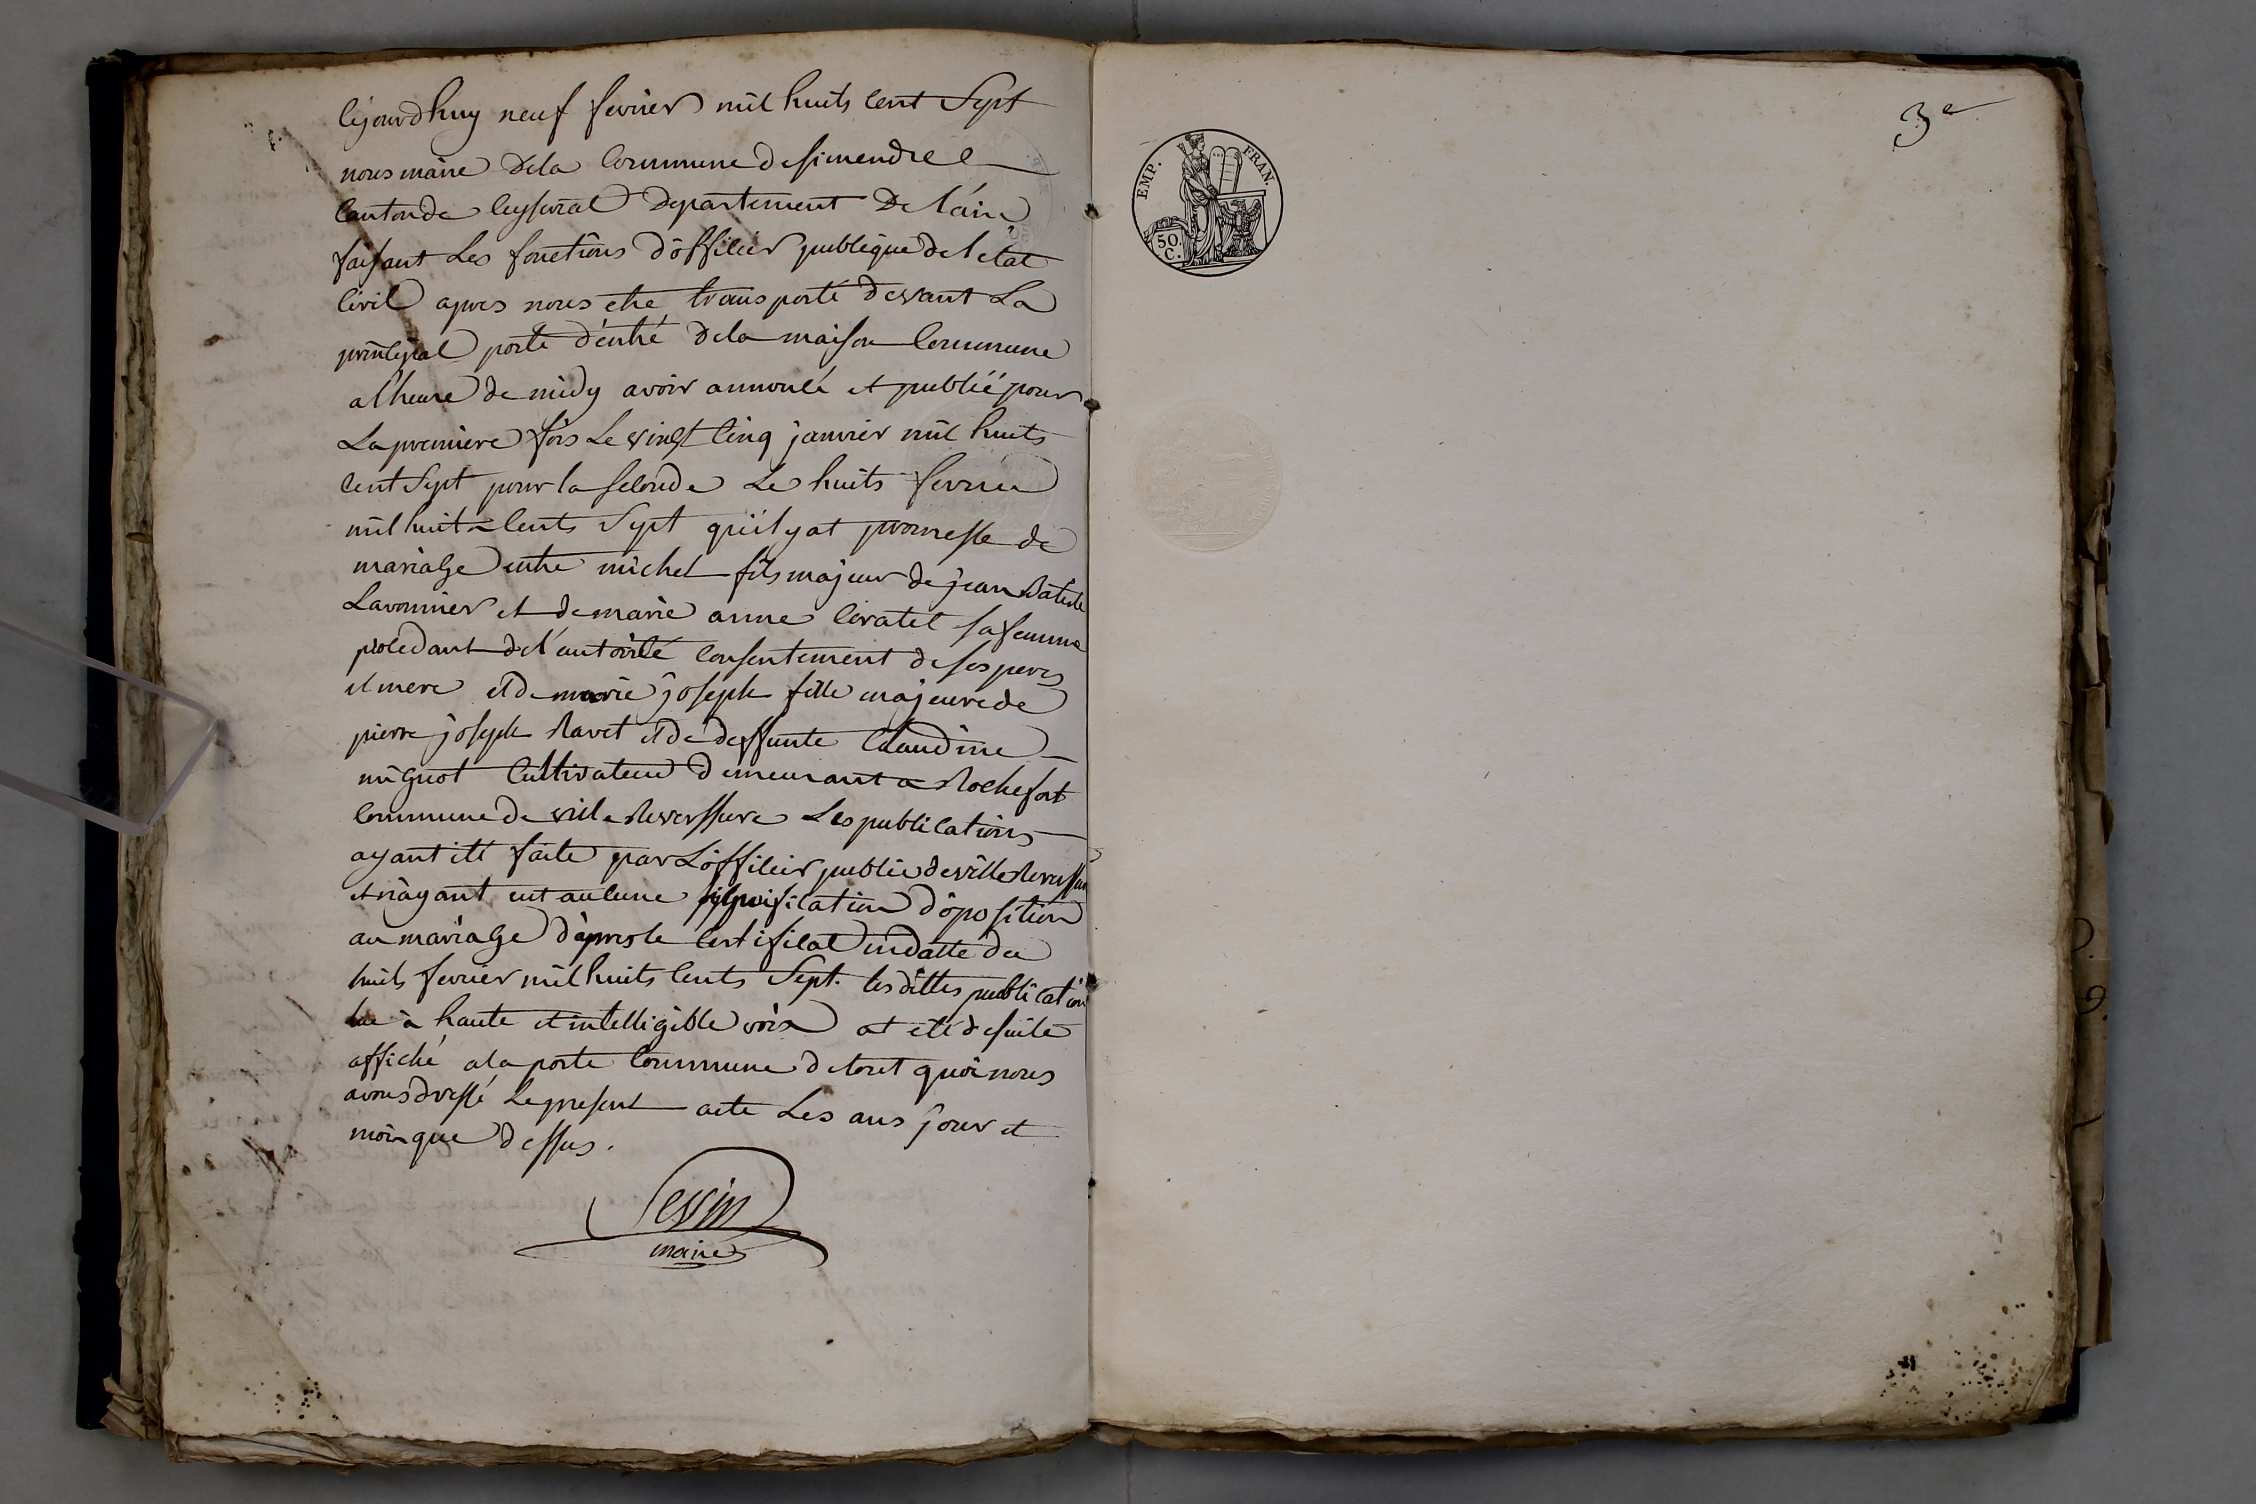 cejourdhuy neuf fevrier mil huits cent Sept
nous maire dela Commune de simendre
Canton de Ceyseriat Departement De lain
faisant Les fonctions dofficier publique de letat
Civil apres nous etre transporté devant La
principal porte dentré dela maison Commune
a lheure de midy avoir annoncé et publié pour
La premiere fois Le vingt Cinq janvier mil huits
cent Sept pour la seconde Le huits fevrier
mil huit cents Sept quil y at promesse de
mariage entre michel fils majeur de jean Batiste
Lavonnier et de marie anne Cevatel sa femme
procedant de lautorité consentement de ses peres
et mere et de marie joseph fille majeure de
pierre joseph Ravet et de deffunte Claudine
mignot Cultivateur demeurant a Rochefort
Commune de ville Reverssure Les publications
ayant ett faite par Lofficier public de ville Reverssure
et nayant eut aucune signification doposition
au mariage dapres le certificat en datte du
huits fevrier mil huits cents Sept. les dittes publication
lue à haute et intelligible voix at été de suite
affiché a la porte Commune de tout quoi nous
avons dressé Le present acte Les ans jour et
moi que dessus.
maire
3e
EMP. FRAN.
50. C.